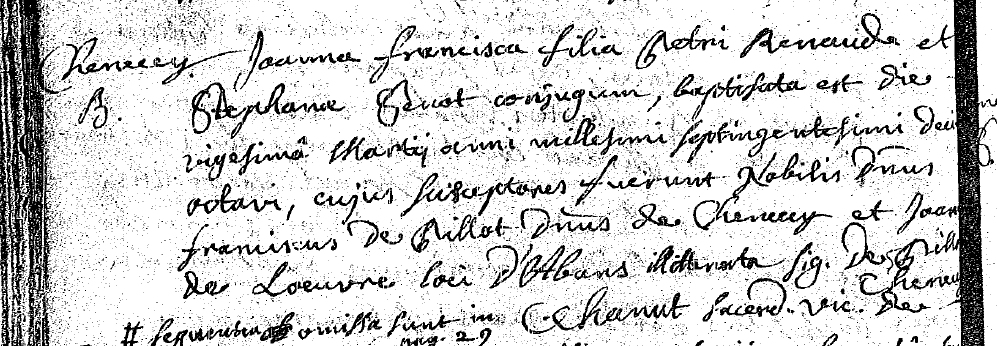 Chenecey. Joanna francisca filia Petri Renaude et
B. Stephanæ Genot conjugum, baptisata est die
vigesimâ Martij anni millesimi septingentesimi deci
octavi, cujus susceptores fuerunt Nobilis Dnus
franciscus De Billot Dnus de Chenecey et Joan
de Loeuvre loci D'Abans illitterata sig. De Bill
# sequentia omissa sunt in pag. 29 Chanut sacerd. vic. de Chenecey